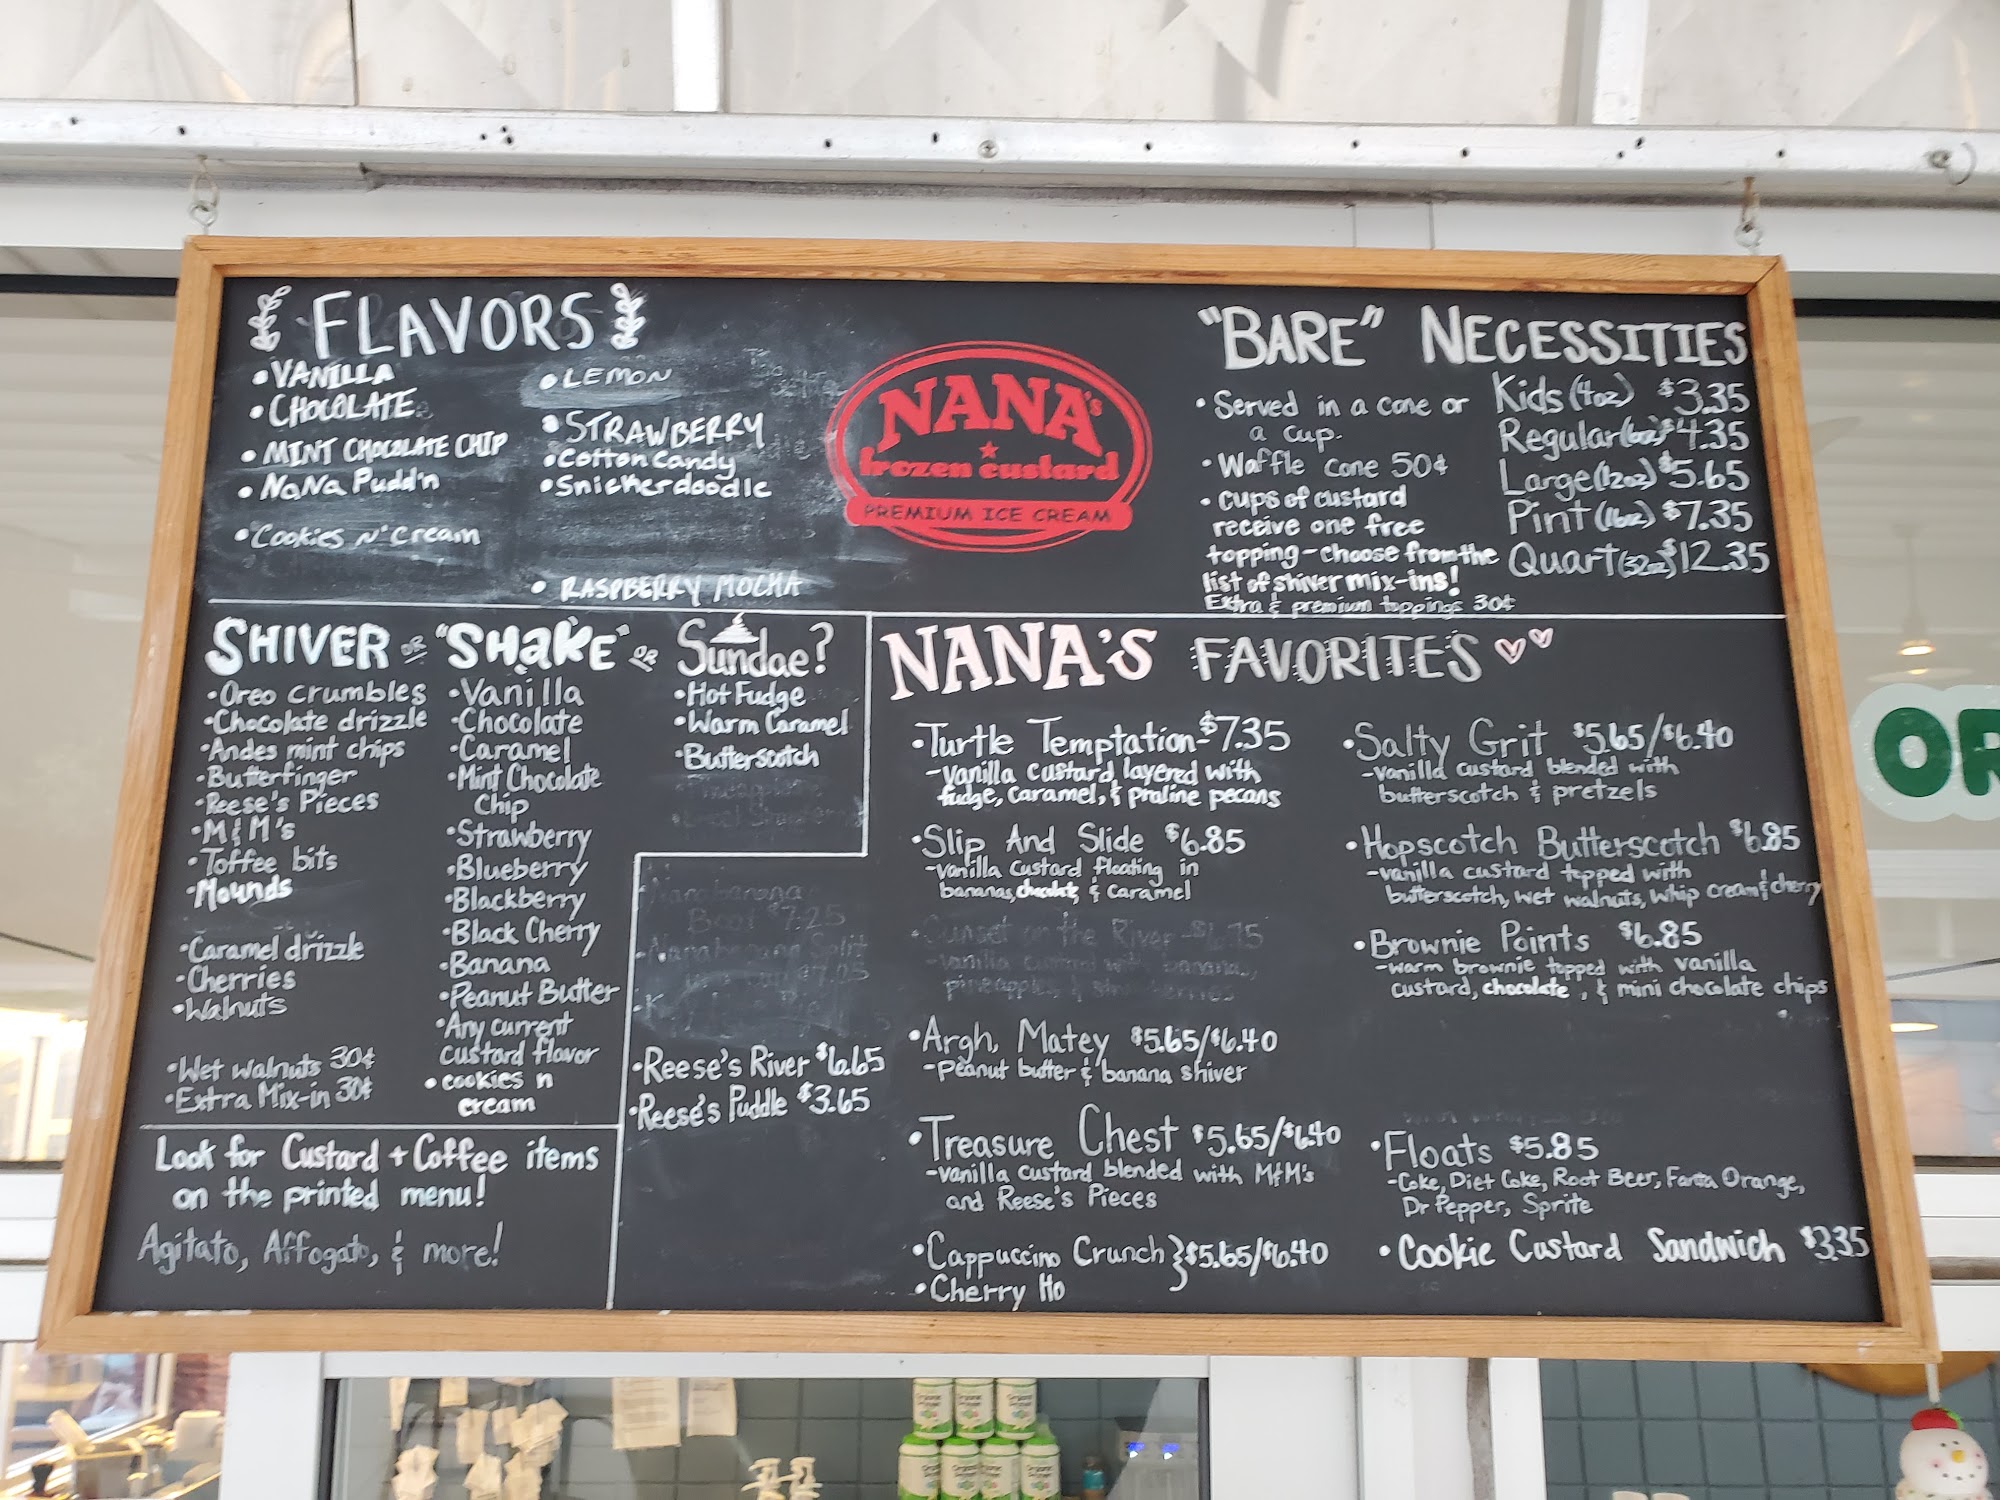 FLAVORS
• VANILLA
• CHOCOLATE
• MINT CHOCOLATE CHIP
• NaNa Pudd'n
• Cookies N' Cream
• LEMON
• STRAWBERRY
• Cotton Candy
• Snickerdoodle
• RASPBERRY MOCHA
NANA's
frozen custard
PREMIUM ICE CREAM
"BARE" NECESSITIES
• Served in a cone or
a cup.
• Waffle cone 50¢
• cups of custard
receive one free
topping - choose from the
list of shiver mix-ins!
Extra & premium toppings 30¢
Kids (4oz) $3.35
Regular (6oz) $4.35
Large (12oz) $5.65
Pint (16oz) $7.35
Quart (32oz) $12.35
SHIVER OR "SHAKE" OR Sundae?
• Oreo crumbles
• Chocolate drizzle
• Andes mint chips
• Butterfinger
• Reese's Pieces
• M&M's
• Toffee bits
• Mounds
• Caramel drizzle
• Cherries
• Walnuts
• Wet walnuts 30¢
• Extra Mix-in 30¢
• Vanilla
• Chocolate
• Caramel
• Mint Chocolate
Chip
• Strawberry
• Blueberry
• Blackberry
• Black Cherry
• Banana
• Peanut Butter
• Any current
custard flavor
• cookies n
cream
• Hot Fudge
• Warm Caramel
• Butterscotch
Nanabanana
Boat $7.25
• Nanabanana Split
$7.25
• Reese's River $6.65
• Reese's Puddle $3.65
Look for Custard + Coffee items
on the printed menu!
Agitato, Affogato, & more!
NANA'S FAVORITES
• Turtle Temptation - $7.35
- vanilla custard layered with
fudge, caramel, & praline pecans
• Slip And Slide $6.85
- vanilla custard floating in
bananas, chocolate, & caramel
• Sunset on the River - $6.75
- vanilla custard with banana,
pineapple, & strawberries
• Argh, Matey $5.65/$6.40
- peanut butter & banana shiver
• Treasure Chest $5.65/$6.40
- vanilla custard blended with M&M's
and Reese's Pieces
• Cappuccino Crunch } $5.65/$6.40
• Cherry Ho
• Salty Grit $5.65/$6.40
- vanilla custard blended with
butterscotch & pretzels
• Hopscotch Butterscotch $6.85
- vanilla custard topped with
butterscotch, wet walnuts, whip cream & cherry
• Brownie Points $6.85
- warm brownie topped with vanilla
custard, chocolate, & mini chocolate chips
• Floats $5.85
- Coke, Diet Coke, Root Beer, Fanta Orange,
Dr Pepper, Sprite
• Cookie Custard Sandwich $3.35
OR